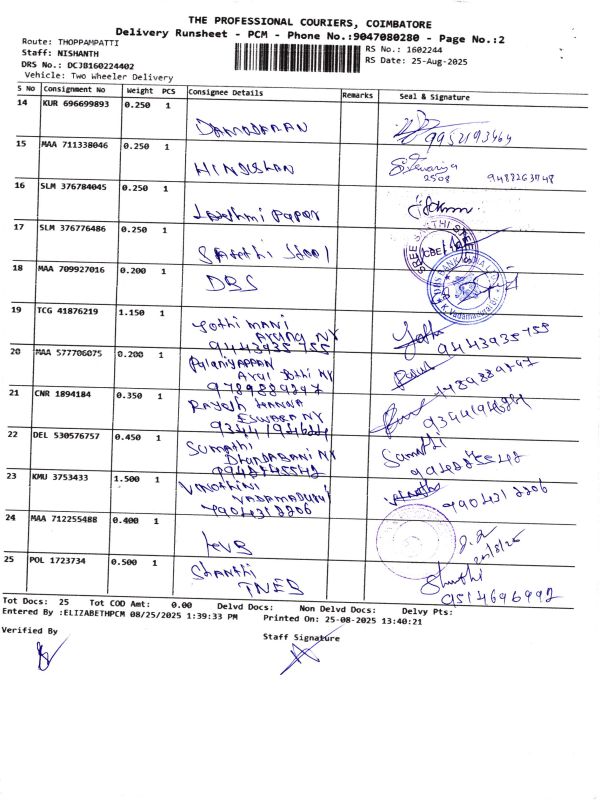 THE PROFESSIONAL COURIERS, COIMBATORE
Delivery Runsheet - PCM - Phone No.:9047080280 - Page No.:2
Route: THOPPAMPATTI
Staff: NISHANTH
DRS No.: DCJB160224402
Vehicle: Two Wheeler Delivery
RS No.: 1602244
RS Date: 25-Aug-2025
S No Consignment No Weight PCS Consignee Details Remarks Seal & Signature
14 KUR 696699893 0.250 1
DAMODARAN
9952193464
15 MAA 711338046 0.250 1
HINDUSTAN
2508
16 SLM 376784045 0.250 1
Lakshmi Paper
17 SLM 376776486 0.250 1
CBE
18 MAA 709927016 0.200 1
DBS
19 TCG 41876219 1.150 1
Jothi MANI
ARUNA NY
9443935755
9443935755
20 MAA 577706075 0.200 1
Palaniyappan
Arul Jothi NY
9789889247
9789889247
21 CNR 1894184 0.350 1
Rajesh KANNA
ESWARA NY
22 DEL 530576757 0.450 1
Sumathi
Dhandabani NY
Sumathi
23 KMU 3753433 1.500 1
VINOTHINI
VADAMADURAI
24 MAA 712255488 0.400 1
KVB
25 POL 1723734 0.500 1
Shanthi
TNEB
Shanthi
9514696992
Tot Docs: 25 Tot COD Amt: 0.00 Delvd Docs: Non Delvd Docs: Delvy Pts:
Entered By :ELIZABETHPCM 08/25/2025 1:39:33 PM Printed On: 25-08-2025 13:40:21
Verified By
Staff Signature